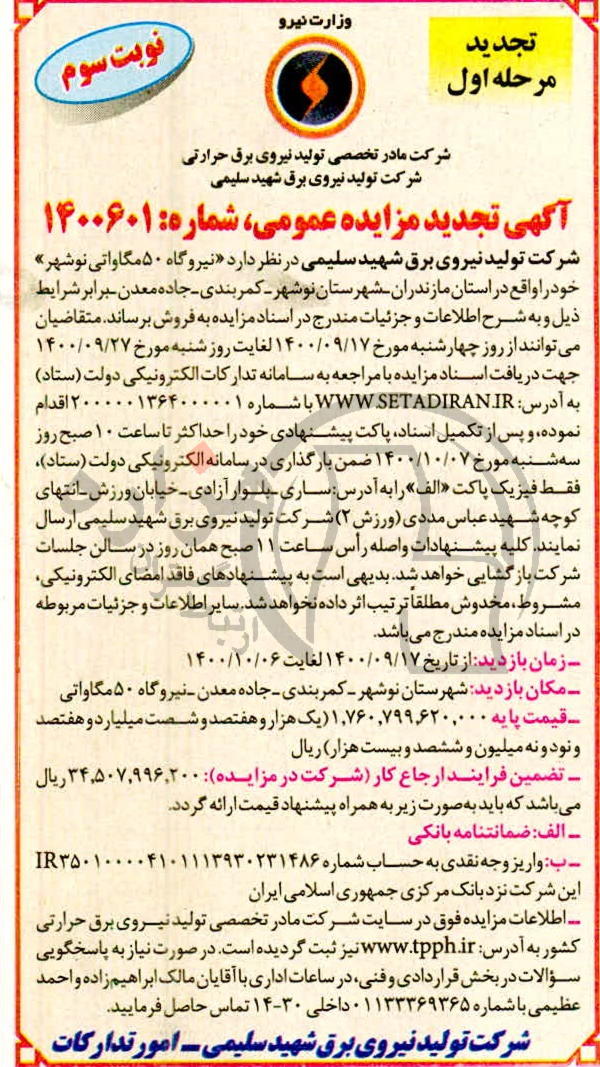 وزارت نیرو
تجدید
مرحله اول
نوبت سوم
شرکت مادر تخصصی تولید نیروی برق حرارتی
شرکت تولید نیروی برق شهید سلیمی
آگهی تجدید مزایده عمومی، شماره: ۱۴۰۰۶۰۱
شرکت تولید نیروی برق شهید سلیمی در نظر دارد «نیروگاه ۵۰ مگاواتی نوشهر»
خود را واقع در استان مازندران ـ شهرستان نوشهر ـ کمربندی ـ جاده معدن ـ برابر شرایط
ذیل و به شرح اطلاعات و جزئیات مندرج در اسناد مزایده به فروش برساند. متقاضیان
می‌توانند از روز چهارشنبه مورخ ۱۴۰۰/۰۹/۱۷ لغایت روز شنبه مورخ ۱۴۰۰/۰۹/۲۷
جهت دریافت اسناد مزایده با مراجعه به سامانه تدارکات الکترونیکی دولت (ستاد)
به آدرس: WWW.SETADIRAN.IR با شماره ۲۰۰۰۰۰۱۳۶۴۰۰۰۰۰۱ اقدام
نموده، و پس از تکمیل اسناد، پاکت پیشنهادی خود را حداکثر تا ساعت ۱۰ صبح روز
سه‌شنبه مورخ ۱۴۰۰/۱۰/۰۷ ضمن بارگذاری در سامانه الکترونیکی دولت (ستاد)،
فقط فیزیک پاکت «الف» را به آدرس: ساری ـ بلوار آزادی ـ خیابان ورزش ـ انتهای
کوچه شهید عباس مددی (ورزش ۲) شرکت تولید نیروی برق شهید سلیمی ارسال
نمایند. کلیه پیشنهادات واصله رأس ساعت ۱۱ صبح همان روز در سالن جلسات
شرکت بازگشایی خواهد شد. بدیهی است به پیشنهادهای فاقد امضای الکترونیکی،
مشروط، مخدوش مطلقاً ترتیب اثر داده نخواهد شد. سایر اطلاعات و جزئیات مربوطه
در اسناد مزایده مندرج می‌باشد.
ـ زمان بازدید: از تاریخ ۱۴۰۰/۰۹/۱۷ لغایت ۱۴۰۰/۱۰/۰۶
ـ مکان بازدید: شهرستان نوشهر ـ کمربندی ـ جاده معدن ـ نیروگاه ۵۰ مگاواتی
ـ قیمت پایه ۱,۷۶۰,۷۹۹,۶۲۰,۰۰۰ (یک هزار و هفتصد و شصت میلیارد و هفتصد
و نود و نه میلیون و ششصد و بیست هزار) ریال
ـ تضمین فرایند ارجاع کار (شرکت در مزایده): ۳۴,۵۰۷,۹۹۶,۲۰۰ ریال
می‌باشد که باید به صورت زیر به همراه پیشنهاد قیمت ارائه گردد.
ـ الف: ضمانتنامه بانکی
ـ ب: واریز وجه نقدی به حساب شماره IR۳۵۰۱۰۰۰۰۴۱۰۱۱۱۳۹۳۰۲۳۱۴۸۶
این شرکت نزد بانک مرکزی جمهوری اسلامی ایران
ـ اطلاعات مزایده فوق در سایت شرکت مادر تخصصی تولید نیروی برق حرارتی
کشور به آدرس: www.tpph.ir نیز ثبت گردیده است. در صورت نیاز به پاسخگویی
سؤالات در بخش قراردادی و فنی، در ساعات اداری با آقایان مالک ابراهیم‌زاده و احمد
عظیمی با شماره ۰۱۱۳۳۳۶۹۳۶۵ داخلی ۳۰-۱۴ تماس حاصل فرمایید.
شرکت تولید نیروی برق شهید سلیمی ـ امور تدارکات